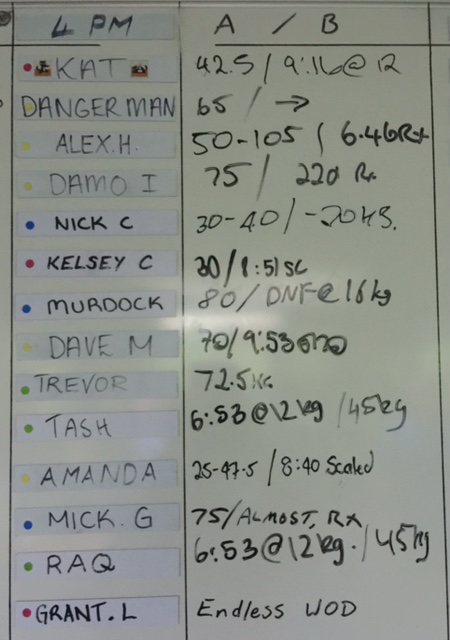 4 PM A / B
KAT 42.5 / 9:16@12
DANGERMAN 65 / →
ALEX.H. 50-105 / 6.46Rx
DAMO I 75 / 220 Rx
NICK C 30-40/-20HS.
KELSEY C 30/8:51SC
MURDOCK 80/DNF@16kg
DAVE M 70/9:53
TREVOR 72.5KG
TASH 6:53@12kg /45kg
AMANDA 25-47.5 / 8:40 Scaled
MICK.G 75/ALMOST, RX
RAQ 6:53@12kg./45kg
GRANT.L Endless WOD